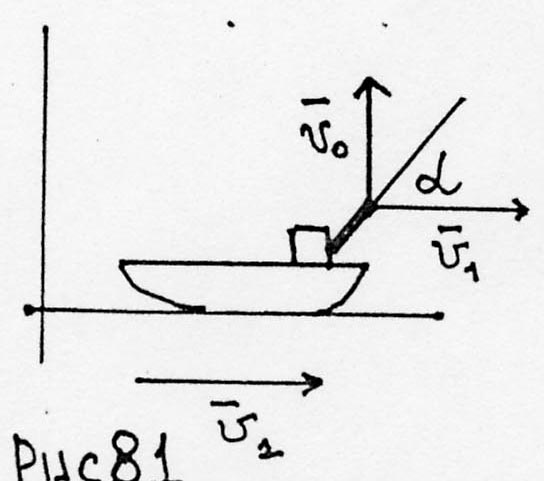 v̄₀
α
v̄₁
v̄₂
Рис81